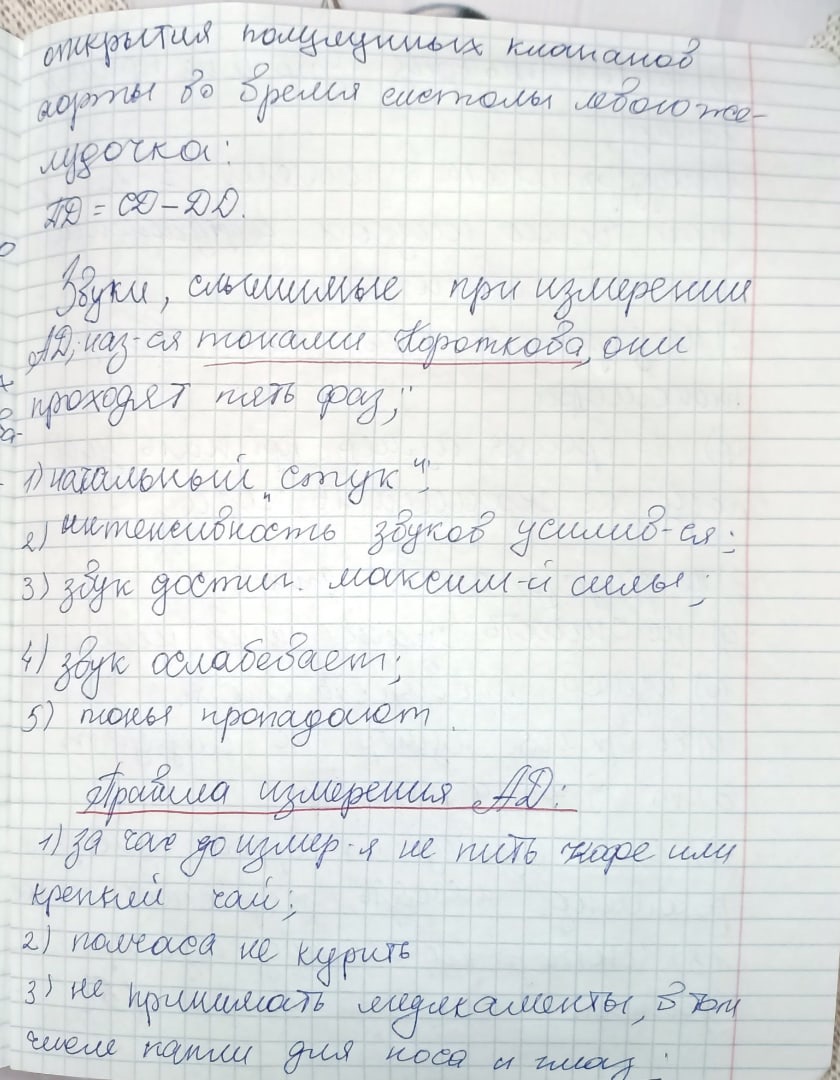 открытия полулунных клапанов
аорты во время систолы левого же-
лудочка:
ПД = СД – ДД.
Звуки, слышимые при измерении
АД, наз-ся тонами Короткова, они
проходят пять фаз;
1) начальный „стук“;
2) интенсивность звуков усилив-ся;
3) звук достиг. максим-й силы;
4) звук ослабевает;
5) тоны пропадают.
Правила измерения АД:
1) за час до измер-я не пить кофе или
крепкий чай;
2) полчаса не курить
3) не принимать медикаменты, в том
числе капли для носа и глаз;